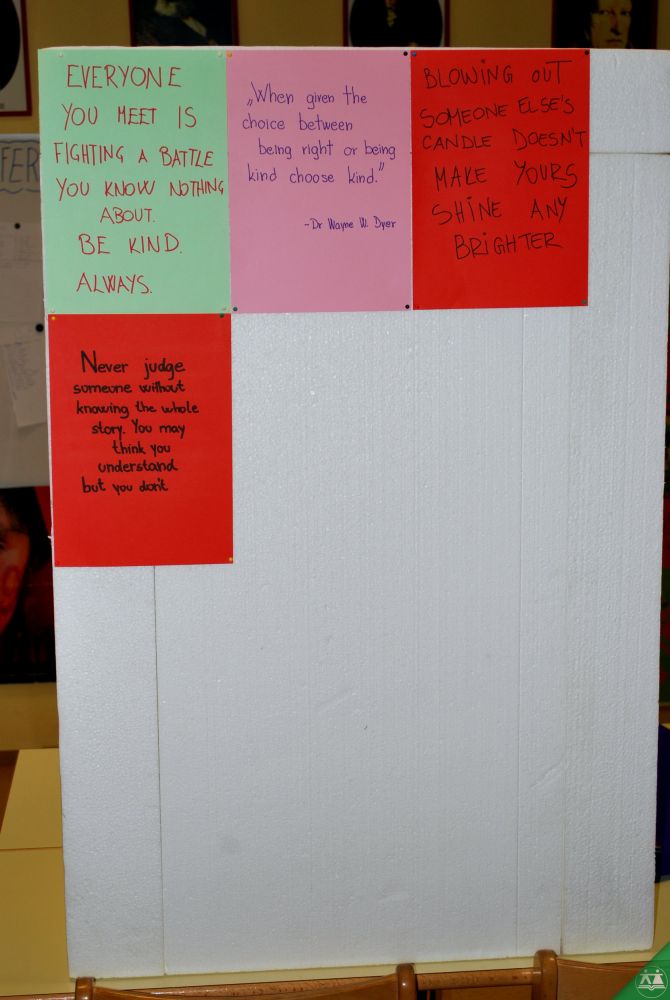 EVERYONE
YOU MEET IS
FIGHTING A BATTLE
YOU KNOW NOTHING
ABOUT.
BE KIND.
ALWAYS.
„When given the
choice between
being right or being
kind choose kind.”
-Dr Wayne W. Dyer
BLOWING OUT
SOMEONE ELSE'S
CANDLE DOESN'T
MAKE YOURS
SHINE ANY
BRIGHTER
Never judge
someone without
knowing the whole
story. You may
think you
understand
but you don't